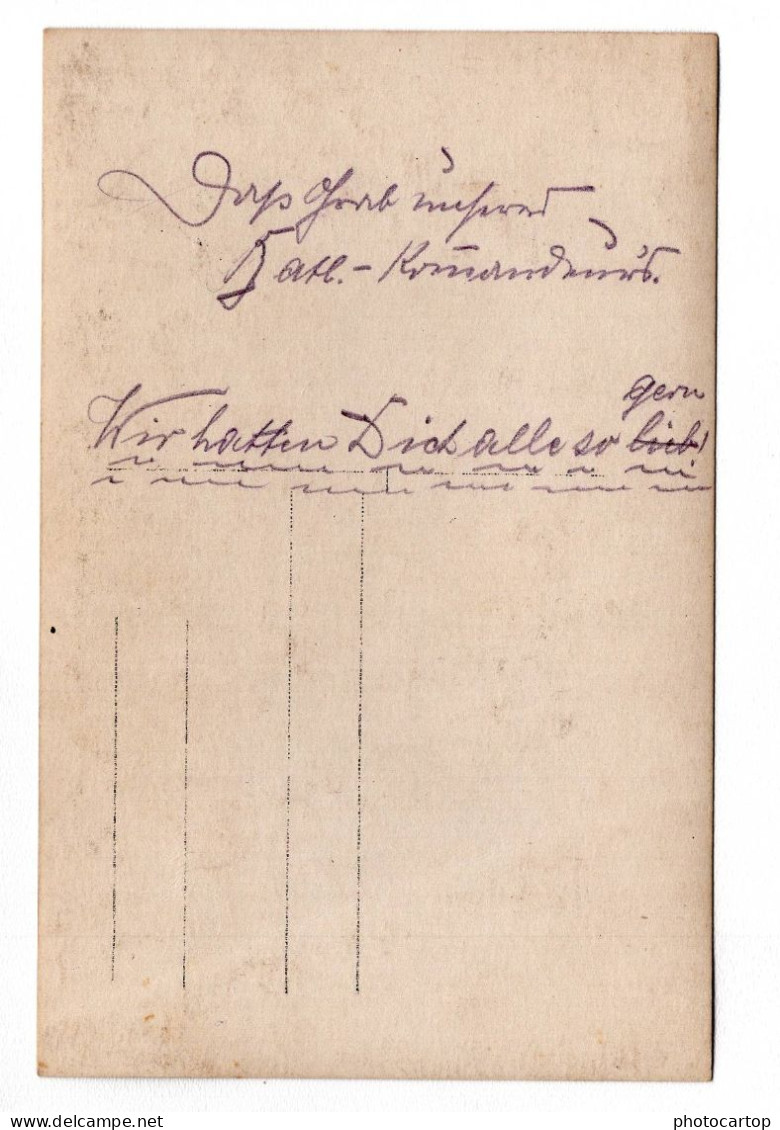 Daß Grab unseres
Batl.-Kom̅andeur's.
Wir hatten Dich alle so ~~lieb~~ gern!
delcampe.net
photocartop